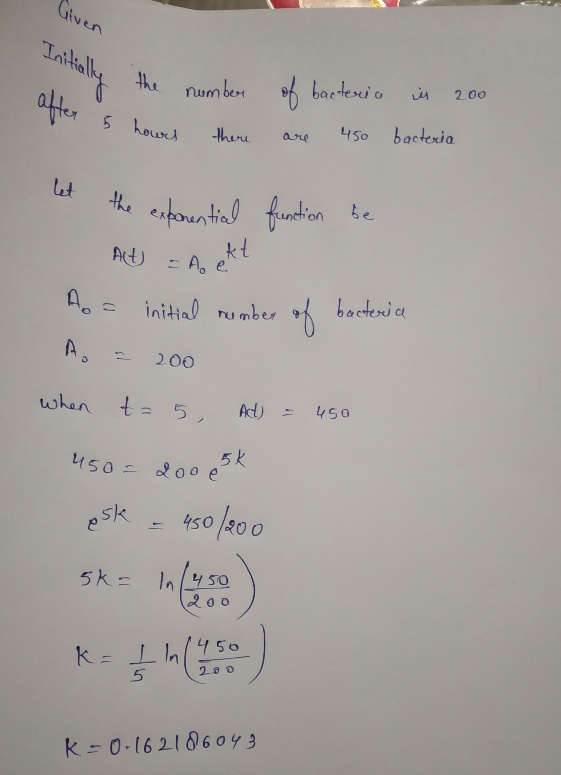 Given
Initially the number of bacteria is 200
after 5 hours there are 450 bacteria
Let the exponential function be
A(t) = A₀ e^kt
A₀ = initial number of bacteria
A₀ = 200
when t = 5, A(t) = 450
450 = 200 e^5k
e^5k = 450/200
5k = ln(450/200)
k = 1/5 ln(450/200)
k = 0.162186043